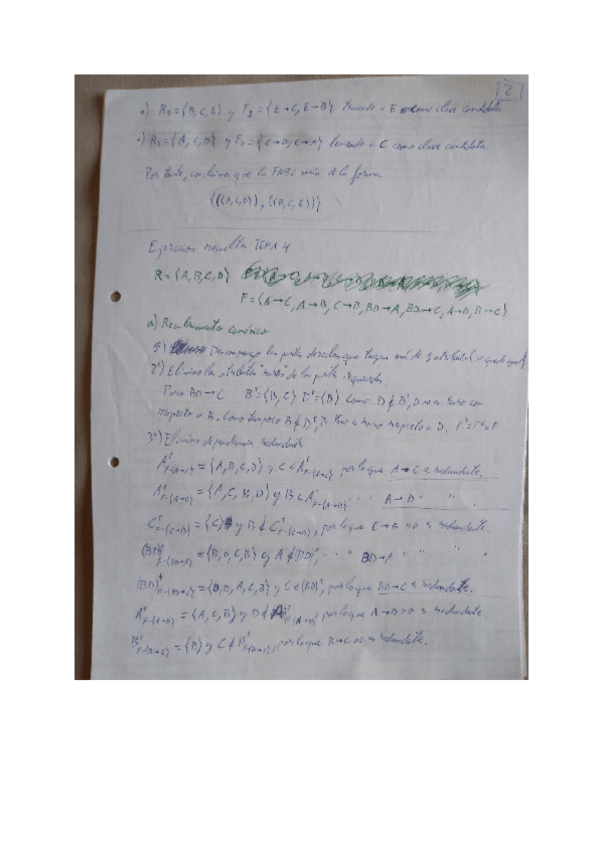 [2]
•) R₂={B,C,E} y F₂={E→C, E→B} teniendo a E como clave candidata
•) R₁={A,C,D} y F₁={C→D, C→A} teniendo a C como clave candidata.
Por tanto, que la FNBC sería de la forma
{({A,C,D}), ({B,C,E})}
Ejercicios resueltos TEMA 4
R={A,B,C,D}
F={A→C, A→B, C→B, BD→A, BD→C, A→D, B→C}
a) Recubrimiento canónico
1º) Descompongo las partes derechas que tengan más de 1 atributo
2º) Elimino los atributos raros de las partes izquierdas.
Para BD→C B⁺={B,C} D⁺={D} Como D∉B⁺, D no es raro con
respecto a B. Como tampoco B∉D⁺, B no es raro respecto a D.
3º) Elimino dependencias redundantes
A⁺F-{A→C} = {A,B,C,D} y C∈A⁺F-{A→C} por lo que A→C es redundante.
A⁺F-{A→B} = {A,C,B,D} y B∈A⁺ " " A→B " " .
C⁺F-{C→B} = {C} y B∉C⁺F-{C→B}, por lo que C→B no es redundante.
(BD)⁺F-{BD→A} = {B,D,C} y A∉(BD)⁺, " " BD→A " " " "
(BD)⁺F-{BD→C} = {B,D,A,C} y C∈(BD)⁺, por lo que BD→C es redundante.
A⁺F-{A→D} = {A,C,B} y D∉A⁺F-{A→D} por lo que A→D no es redundante
B⁺F-{B→C} = {B} y C∉B⁺F-{B→C}, por lo que B→C no es redundante.